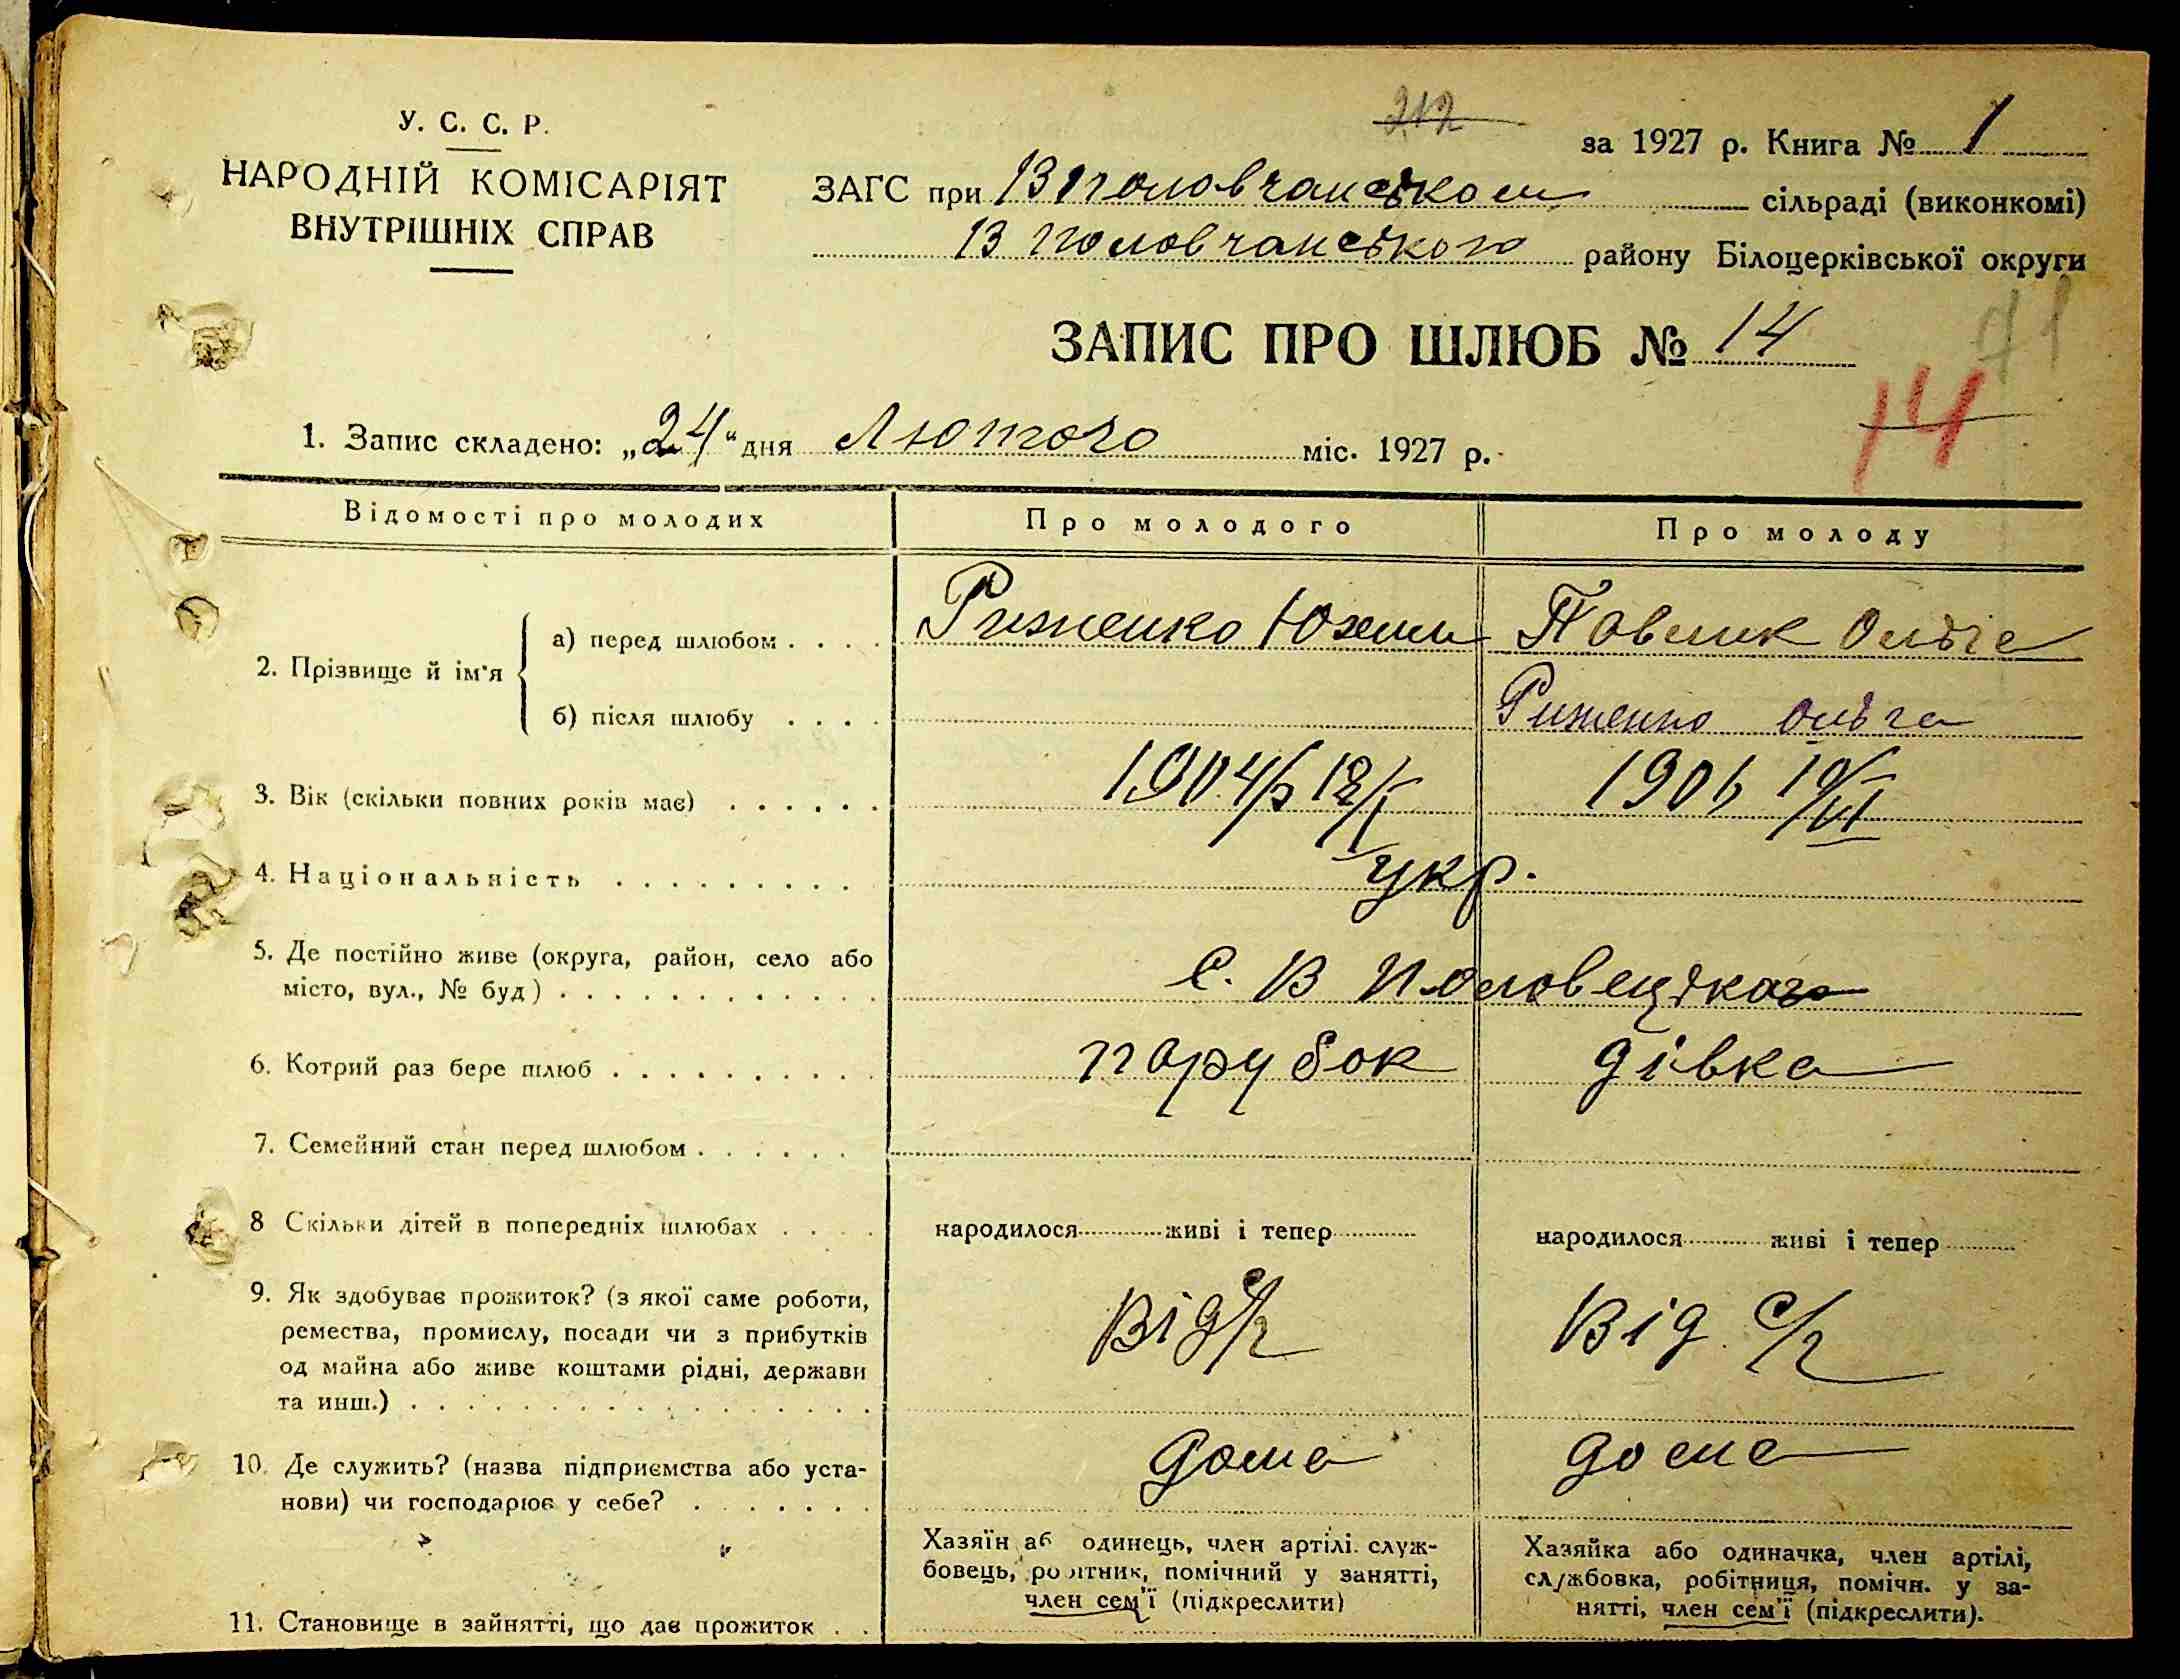 У. С. С. Р.
НАРОДНІЙ КОМІСАРІЯТ
ВНУТРІШНІХ СПРАВ
212
за 1927 р. Книга № 1
ЗАГС при В Половчанськом сільраді (виконкомі)
В Половчанського району Білоцерківської округи
ЗАПИС ПРО ШЛЮБ № 14
71
14
1. Запис складено: „24“ дня Лютого міс. 1927 р.
Відомості про молодих Про молодого Про молоду
2. Прізвище й ім'я
а) перед шлюбом . . . . Риженко Юхим Павлик Ольга
б) після шлюбу . . . . Риженко Ольга
3. Вік (скільки повних років має) . . . . . . 1904/5 18/X 1906 10/VI
4. Національність . . . . . . . . . укр.
5. Де постійно живе (округа, район, село або
місто, вул., № буд) . . . . . . . . . . . . с. В Половецька
6. Котрий раз бере шлюб . . . . . . . . . . парубок дівка
7. Семейний стан перед шлюбом . . . . . .
8 Скільки дітей в попередніх шлюбах . . . . народилося живі і тепер народилося живі і тепер
9. Як здобуває прожиток? (з якої саме роботи,
ремества, промислу, посади чи з прибутків
од майна або живе коштами рідні, держави
та инш.) . . . . . . . . . . . . . . . . . Від с/г Від с/г
10. Де служить? (назва підприємства або уста-
нови) чи господарює у себе? . . . . . . . дома дома
11. Становище в зайнятті, що дає прожиток . .
Хазяїн аб одинець, член артілі. служ-
бовець, ро ітник, помічний у занятті,
член сем'ї (підкреслити)
Хазяйка або одиначка, член артілі,
службовка, робітниця, помічн. у за-
нятті, член сем'ї (підкреслити).